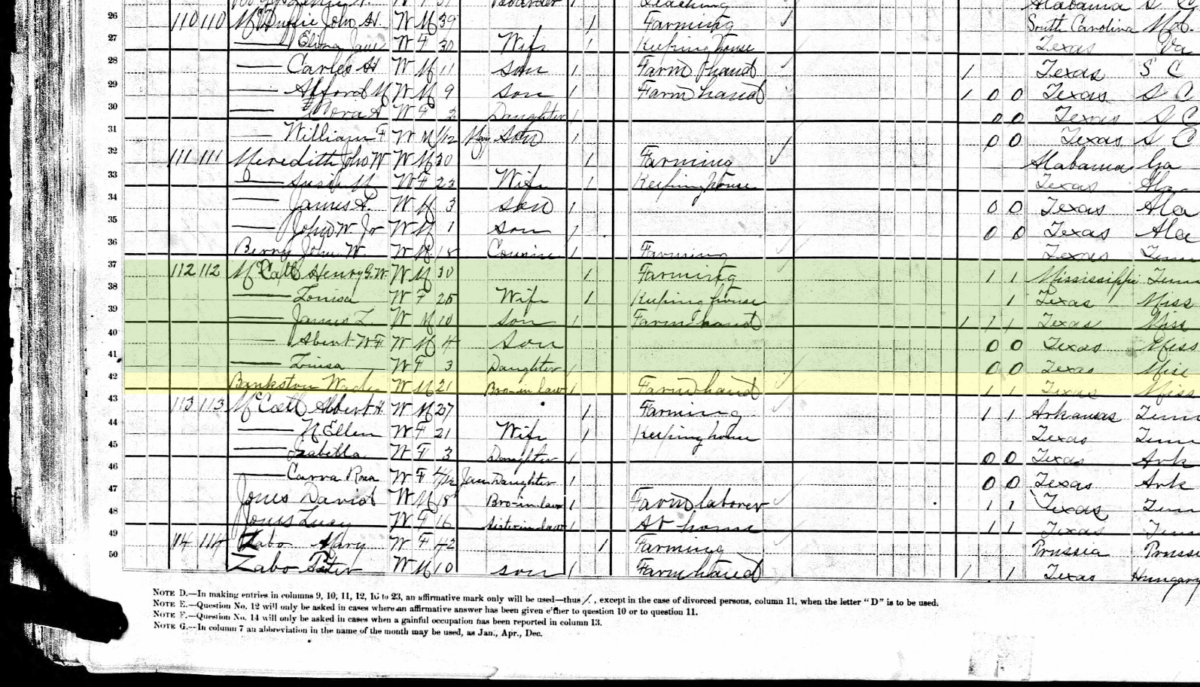 Teaching Alabama S C
26 110 110 John W M 39 1 Farming South Carolina
27 Eliza Jane W F 30 Wife 1 Keeping house Texas Va
28 W M 11 Son 1 Farm hand 1 Texas S C
29 W M 9 Son 1 Farm hand 1 0 0 Texas S C
30 W F 3 Daughter 1 0 0 Texas S C
31 William F W M Son 1 0 0 Texas S C
32 111 111 Meredith W M 30 1 Farming Alabama Ga
33 Susie M W F 23 Wife 1 Keeping house Texas Ala
34 James W M 3 Son 1 0 0 Texas Ala
35 John W Jr W M 1 Son 1 0 0 Texas Ala
36 Berry John W W M 18 Cousin 1 Farming Texas Tenn
37 112 112 Henry G. W W M 30 1 Farming 1 1 Mississippi Tenn
38
39 Louisa W F 25 Wife 1 Keeping house 1 Texas Miss
40 James L W M 10 Son 1 Farm hand 1 1 1 Texas Miss
41 W M 4 Son 0 0 Texas Miss
42 W F 3 Daughter 0 0 Texas Miss
Bankston W M 21 Bro in law Farm hand 1 1 Texas Miss
43 113 113 Albert H W M 27 1 Farming 1 1 Arkansas Tenn
44 Ellen W F 21 Wife 1 Keeping house Texas Tenn
45 Isabella W F 3 Daughter 1 0 0 Texas Ark
46 W F Jan Daughter 1 0 0 Texas Ark
47 Jones David W M 18 Bro in law 1 Farm laborer 1 1 Texas Tenn
48 Jones Lucy W F 16 Sister in law 1 At home 1 1 Texas Tenn
49 114 114 Zabo Mary W F 42 1 Farming Prussia Prussia
50 Zabo W M 10 Son 1 Farm hand 1 1 Texas Hungary
NOTE D.—In making entries in columns 9, 10, 11, 12, 16 to 23, an affirmative mark only will be used—thus /, except in the case of divorced persons, column 11, when the letter "D" is to be used.
NOTE E.—Question No. 12 will only be asked in cases where an affirmative answer has been given either to question 10 or to question 11.
NOTE F.—Question No. 14 will only be asked in cases when a gainful occupation has been reported in column 13.
NOTE G.—In column 7 an abbreviation in the name of the month may be used, as Jan., Apr., Dec.